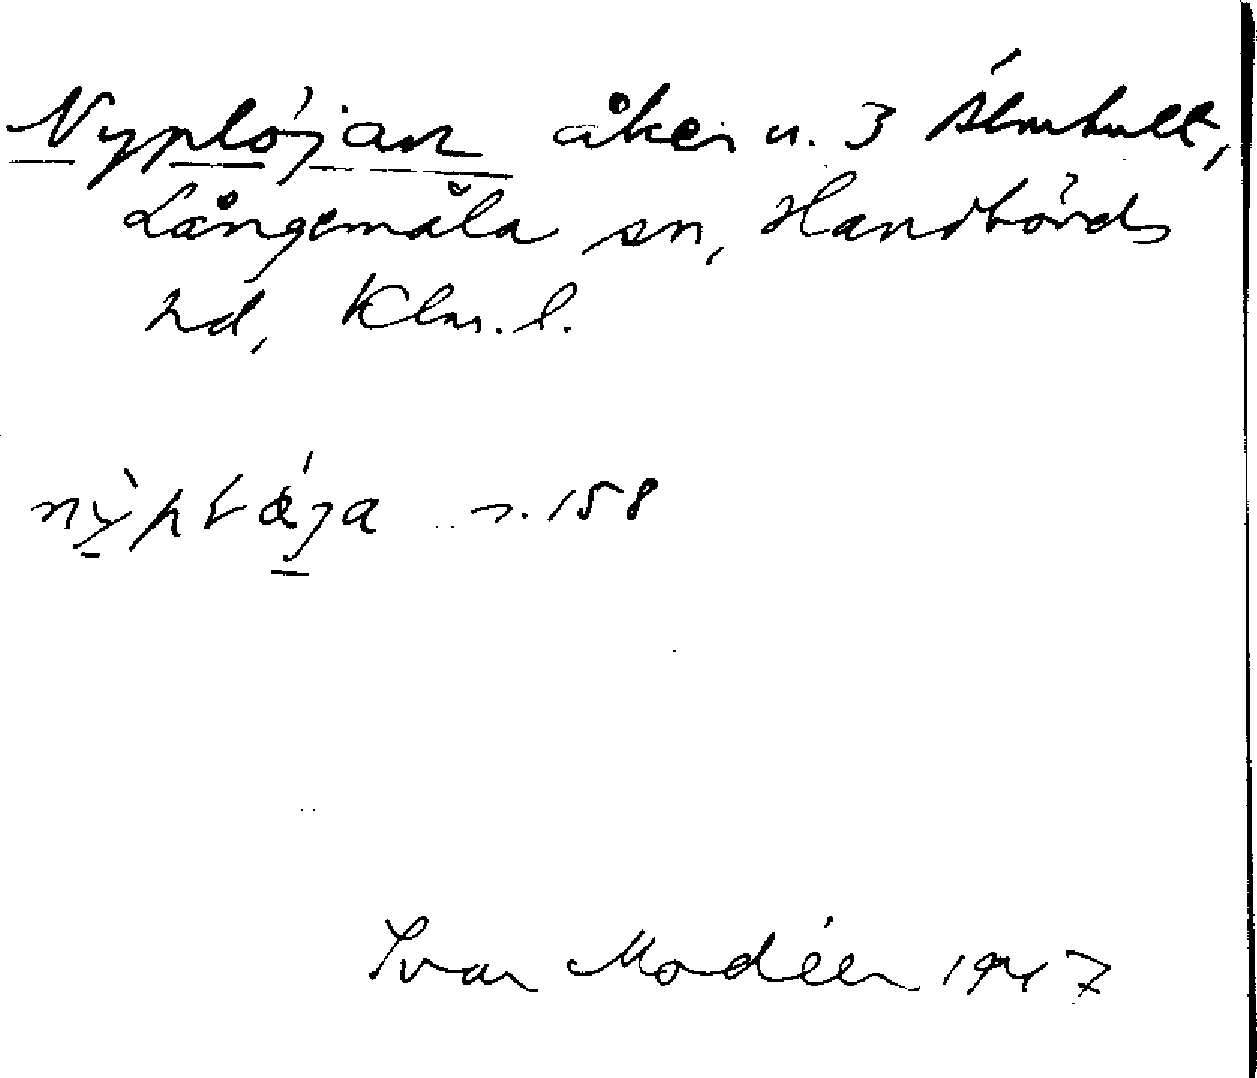 Nyplöjan åker n. 3 Älmhult,
Långemåla sn, Handbörds
hd, Klm. l.
s. 158
Ivar Modéer 1947